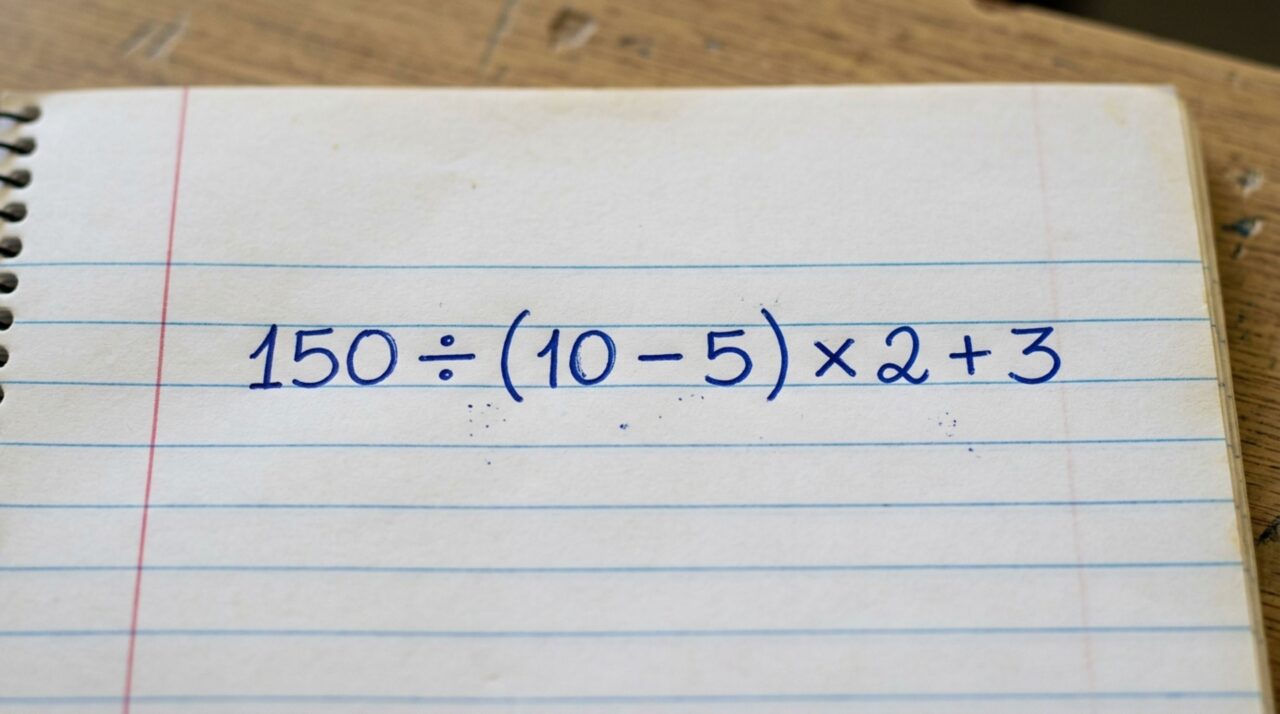 150 ÷ (10 − 5) × 2 + 3